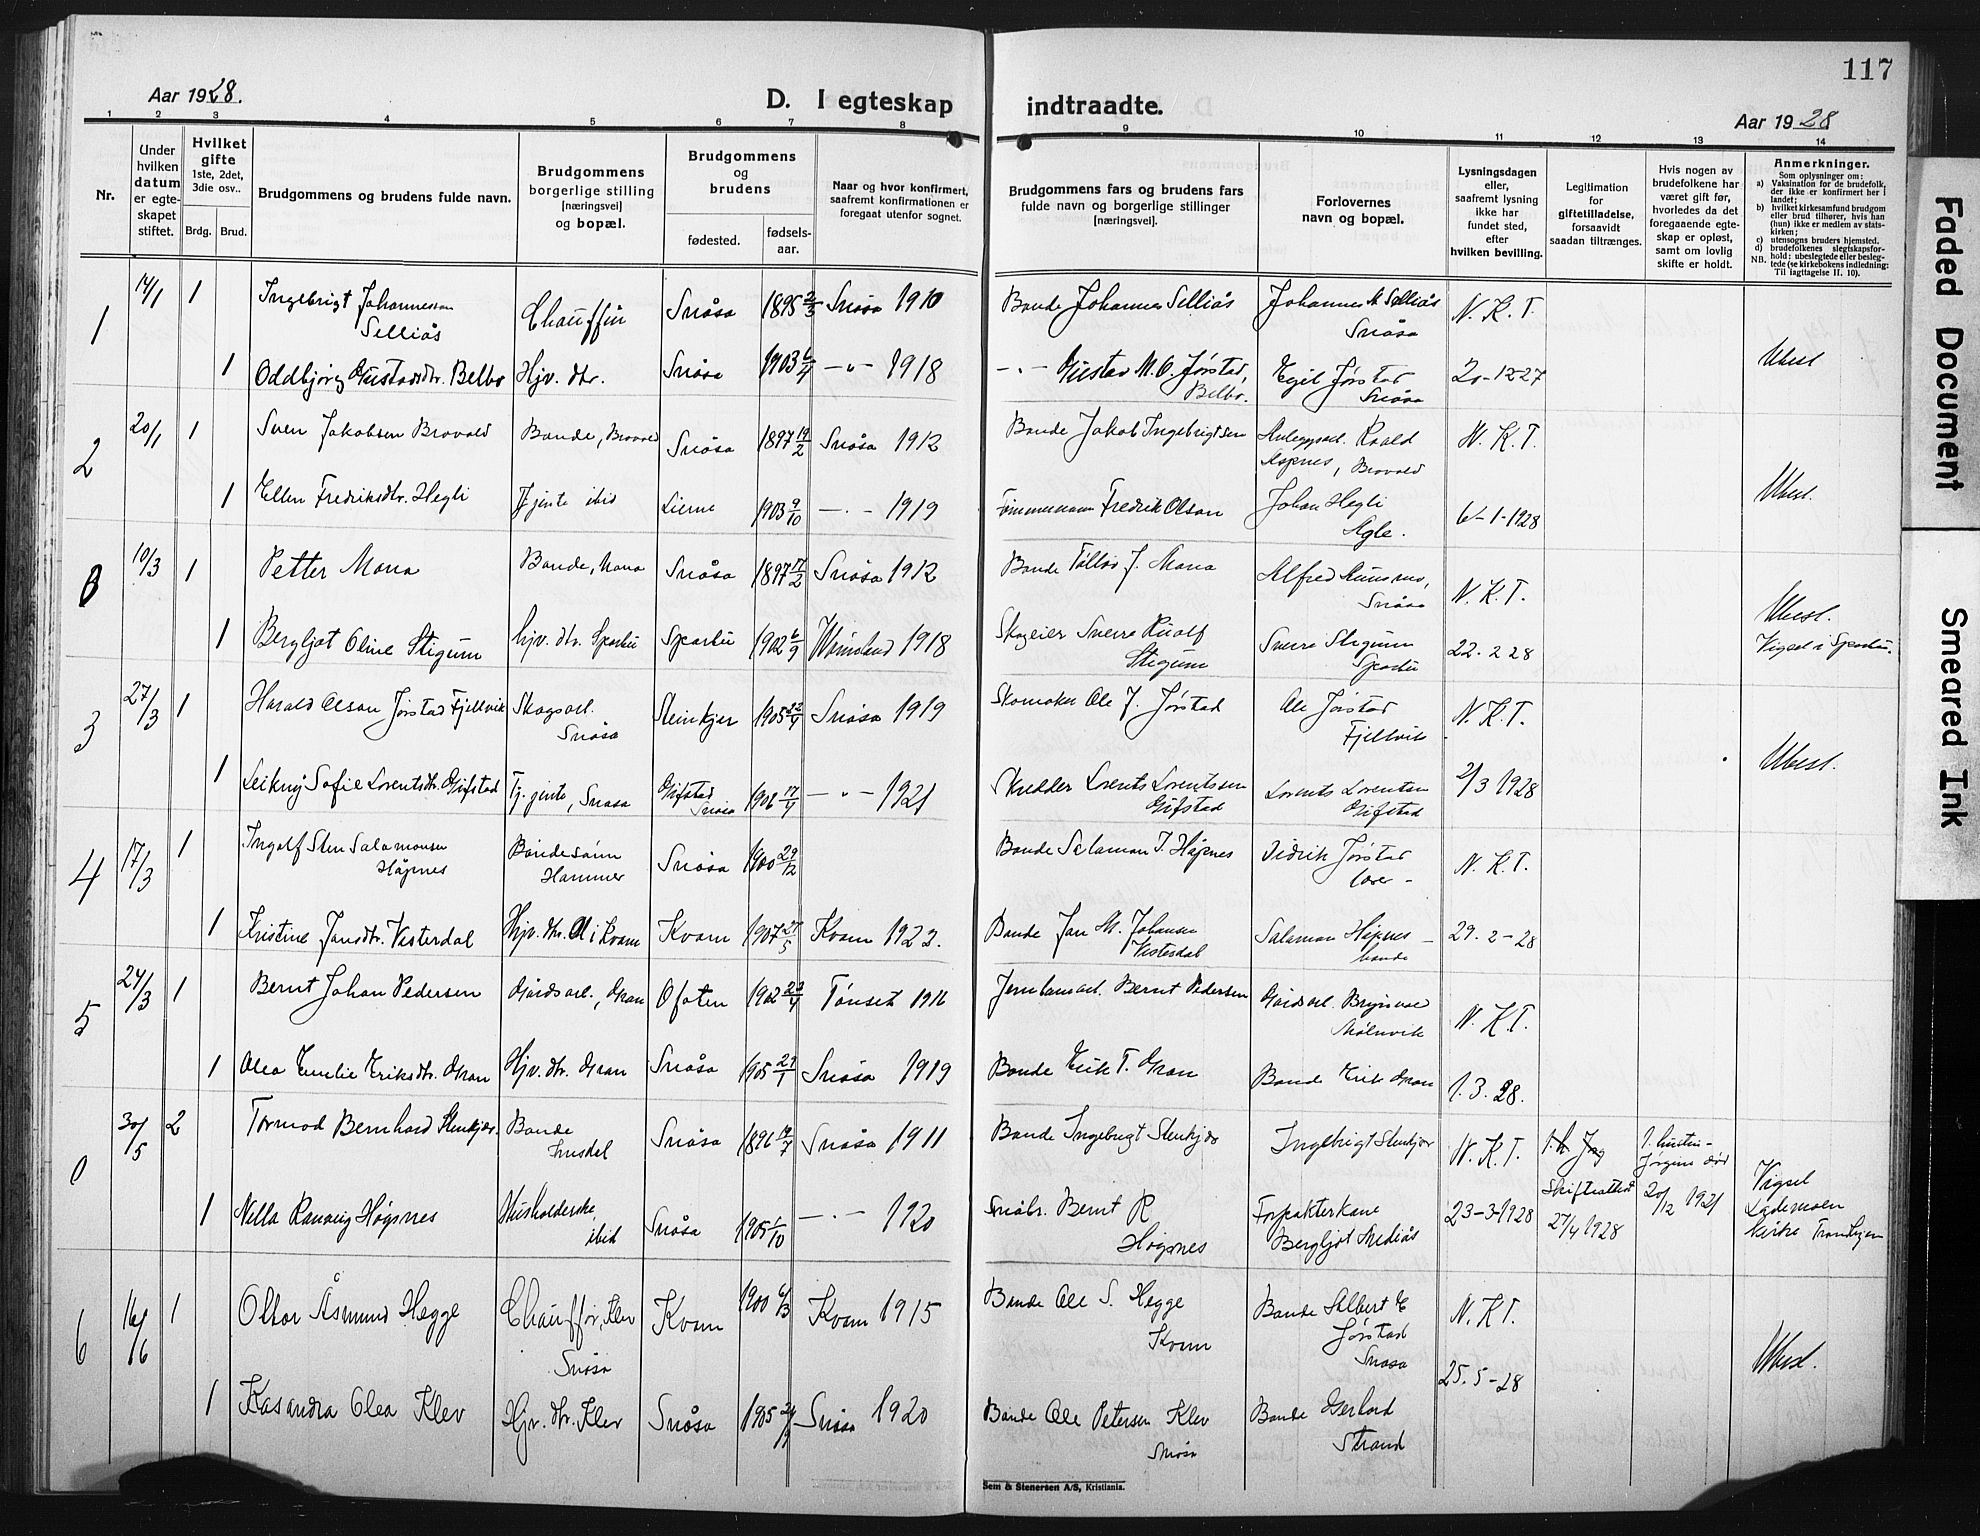 117
Aar 1928.
D. I egteskap indtraadte.
Aar 1928
1 2 3 4 5 6 7 8 9 10 11 12 13 14
Nr.
Under hvilken datum er egteskapet stiftet.
Hvilket gifte 1ste, 2det, 3die osv..
Brdg. Brud.
Brudgommens og brudens fulde navn.
Brudgommens borgerlige stilling [næringsvei] og bopæl.
Brudgommens og brudens
fødested.
fødselsaar.
Naar og hvor konfirmert, saafremt konfirmationen er foregaat utenfor sognet.
Brudgommens fars og brudens fars fulde navn og borgerlige stillinger [næringsvei].
Forlovernes navn og bopæl.
Lysningsdagen eller, saafremt lysning ikke har fundet sted, efter hvilken bevilling.
Legitimation for giftetilladelse, forsaavidt saadan tiltrænges.
Hvis nogen av brudefolkene har været gift før, hvorledes da det foregaaende egteskap er opløst, samt om lovlig skifte er holdt.
Anmerkninger.
Som oplysninger om:
a) Vaksination for de brudefolk, der ikke er konfirmert her i landet;
b) hvilket kirkesamfund brudgom eller brud tilhører, hvis han (hun) ikke er medlem av statskirken;
c) utensogns bruders hjemsted.
d) brudefolkenes slegtskapsforhold: ubeslegtede eller beslegtede (se kirkebokens indledning:
NB. Til iagttagelse II. 10).
1 14/1 1 Ingebrigt Johannessen Selliås Chauffür Snåsa 1895 2/3 Snåsa 1910 Bonde Johannes Selliås Johannes M Selliås Snåsa N. K. T.
1 Oddbjørg Gustavsdtr. Belbo Hjv. dtr. Snåsa 1903 6/4 -"- 1918 -"- Gustav M. O. Jørstad, Belbo. Egil Jørstad Snåsa 20-12 27 Ubesl
2 20/1 1 Sven Jakobsen Brovold Bonde, Brovold Snåsa 1897 19/2 Snåsa 1912 Bonde Jakob Ingebrigtsen Anleggsarb. Roald Aspnes, Brovold N. K. T.
1 Ellen Fredriksdtr. Hegli Tjente ibid Lierne 1903 9/10 -"- 1919 Tømmermann Fredrik Olsen Johan Hegli Agle. 6-1-1928 Ubesl.
0 10/3 1 Petter Mona Bonde, Mona Snåsa 1897 17/2 Snåsa 1912 Bonde Tollev J. Mona Alfred Snåsa N. K. T.
1 Bergljot Oline Stigum hjv. dtr. Sparbu Sparbu 1902 6/9 1918 Skogeier Sverre Stigum Sverre Stigum Sparbu 22. 2 28 Ubesl. Vigsel i Sparbu.
3 27/3 1 Harald Olsen Jørstad Fjellvik Skogsarb. Snåsa Steinkjer 1905 22/4 Snåsa 1919 Skomaker Ole J. Jørstad Ole Jørstad Fjellvik N. K. T.
1 Leikny Sofie Lorentsdtr. Gifstad Tj. jente, Snåsa Gifstad Snåsa 1906 17/4 -"- 1921 Skredder Lorents Lorentssen Gifstad Lorents Lorentsen Gifstad 2/3 1928 Ubesl.
4 17/3 1 Ingolf Sten Salamonsen Høgnes Bondesønn Hammer Snåsa 1900 29/12 Bonde Salamon J. Høgnes Didrik Jørstad lærer - N. K. T.
1 Kristine Jansdtr. Vesterdal Hjv. dtr. i Kvam Kvam 1907 27/5 Kvam 1922. Bonde Jan M. Johansen Vesterdal Salamon Høgnes - bonde 29. 2 - 28
5 24/3 1 Bernt Johan Pedersen Gårdsarb., Gran Ofoten 1902 23/4 Tønset 1916 Jernbanearb. Bernt Pedersen Gårdsarb. N. K. T.
1 Olea Emelie Eriksdtr. Gran Hjv. dtr. Gran Snåsa 1905 29/1 Snåsa 1919 Bonde Erik T. Gran Bonde Erik Gran 1. 3. 28.
0 30/5 2 Tormod Bernhard Stenkjær. Bonde Snåsa 1896 14/7 Snåsa 1911 Bonde Ingebrigt Stenkjær Ingebrigt Stenkjær N. K. T. 1. hustru Jørgine død
1 Nella Ranveig Høgsnes Husholderske ibid Snåsa 1905 1/10 -"- 1920 Småbr. Bernt R Høgsnes Forpakterkone Bergljot 23-3-1928 Skifteattest 27/4 1928 20/12 1921 Vigsel Lademoen kirke Trondhjem
6 16/6 1 Ottor Åsmund Hegge Chauffør, Klev Snåsa Kvam 1900 6/3 Kvam 1915 Bonde Ole S. Hegge Kvam Bonde Albert E Jørstad Snåsa N. K. T.
1 Kasandra Olea Klev Hjv. dtr. Klev Snåsa 1905 24/9 Snåsa 1920 Bonde Ole Petersen Klev Snåsa Bonde Gerhard Strand 25. 5 - 28 Ubesl.
Sem & Stenersen A/S, Kristiania.
Faded Document
Smeared Ink